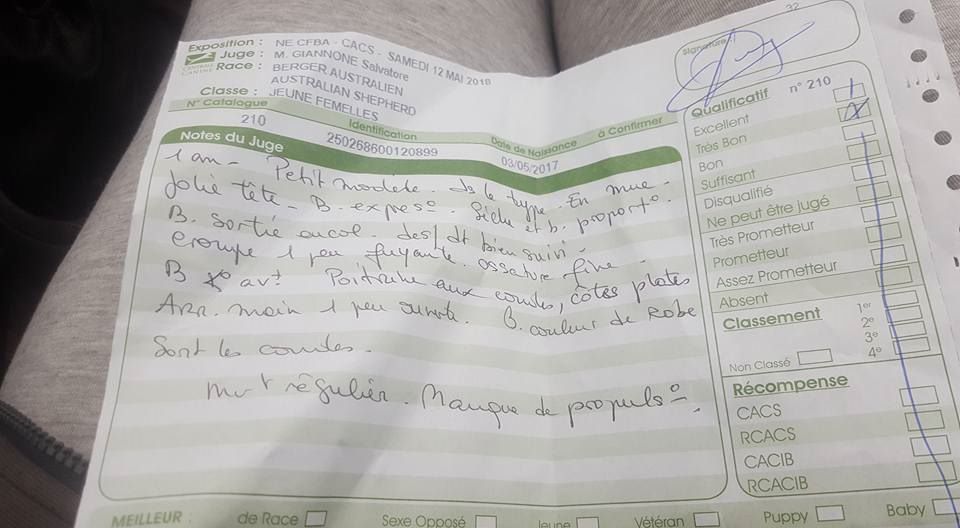 32
Exposition : NE CFBA - CACS - SAMEDI 12 MAI 2018
Juge : M. GIANNONE Salvatore
Race : BERGER AUSTRALIEN
AUSTRALIAN SHEPHERD
CENTRALE CANINE
Classe : JEUNE FEMELLES
N° Catalogue Identification Date de Naissance à Confirmer
210 250268600120899 03/05/2017
Signature
Notes du Juge
1 an - Petit modèle. de type. En mue.
Jolie tête - B. expres°. Sèche et b. proport°.
B. sortie encol. des/dt bien suivi
croupe 1 peu fuyante. ossature fine.
B av^t Poitrine aux coudes, côtes plates
Arr. main 1 peu B. couleur de Robe
Sort les coudes.
Mv^t régulier. Manque de propuls°.
Qualificatif n° 210
Excellent
Très Bon
Bon
Suffisant
Disqualifié
Ne peut être jugé
Très Prometteur
Prometteur
Assez Prometteur
Absent
Classement 1er
2e
3e
4e
Non Classé
Récompense
CACS
RCACS
CACIB
RCACIB
MEILLEUR : de Race Sexe Opposé Jeune Vétéran Puppy Baby